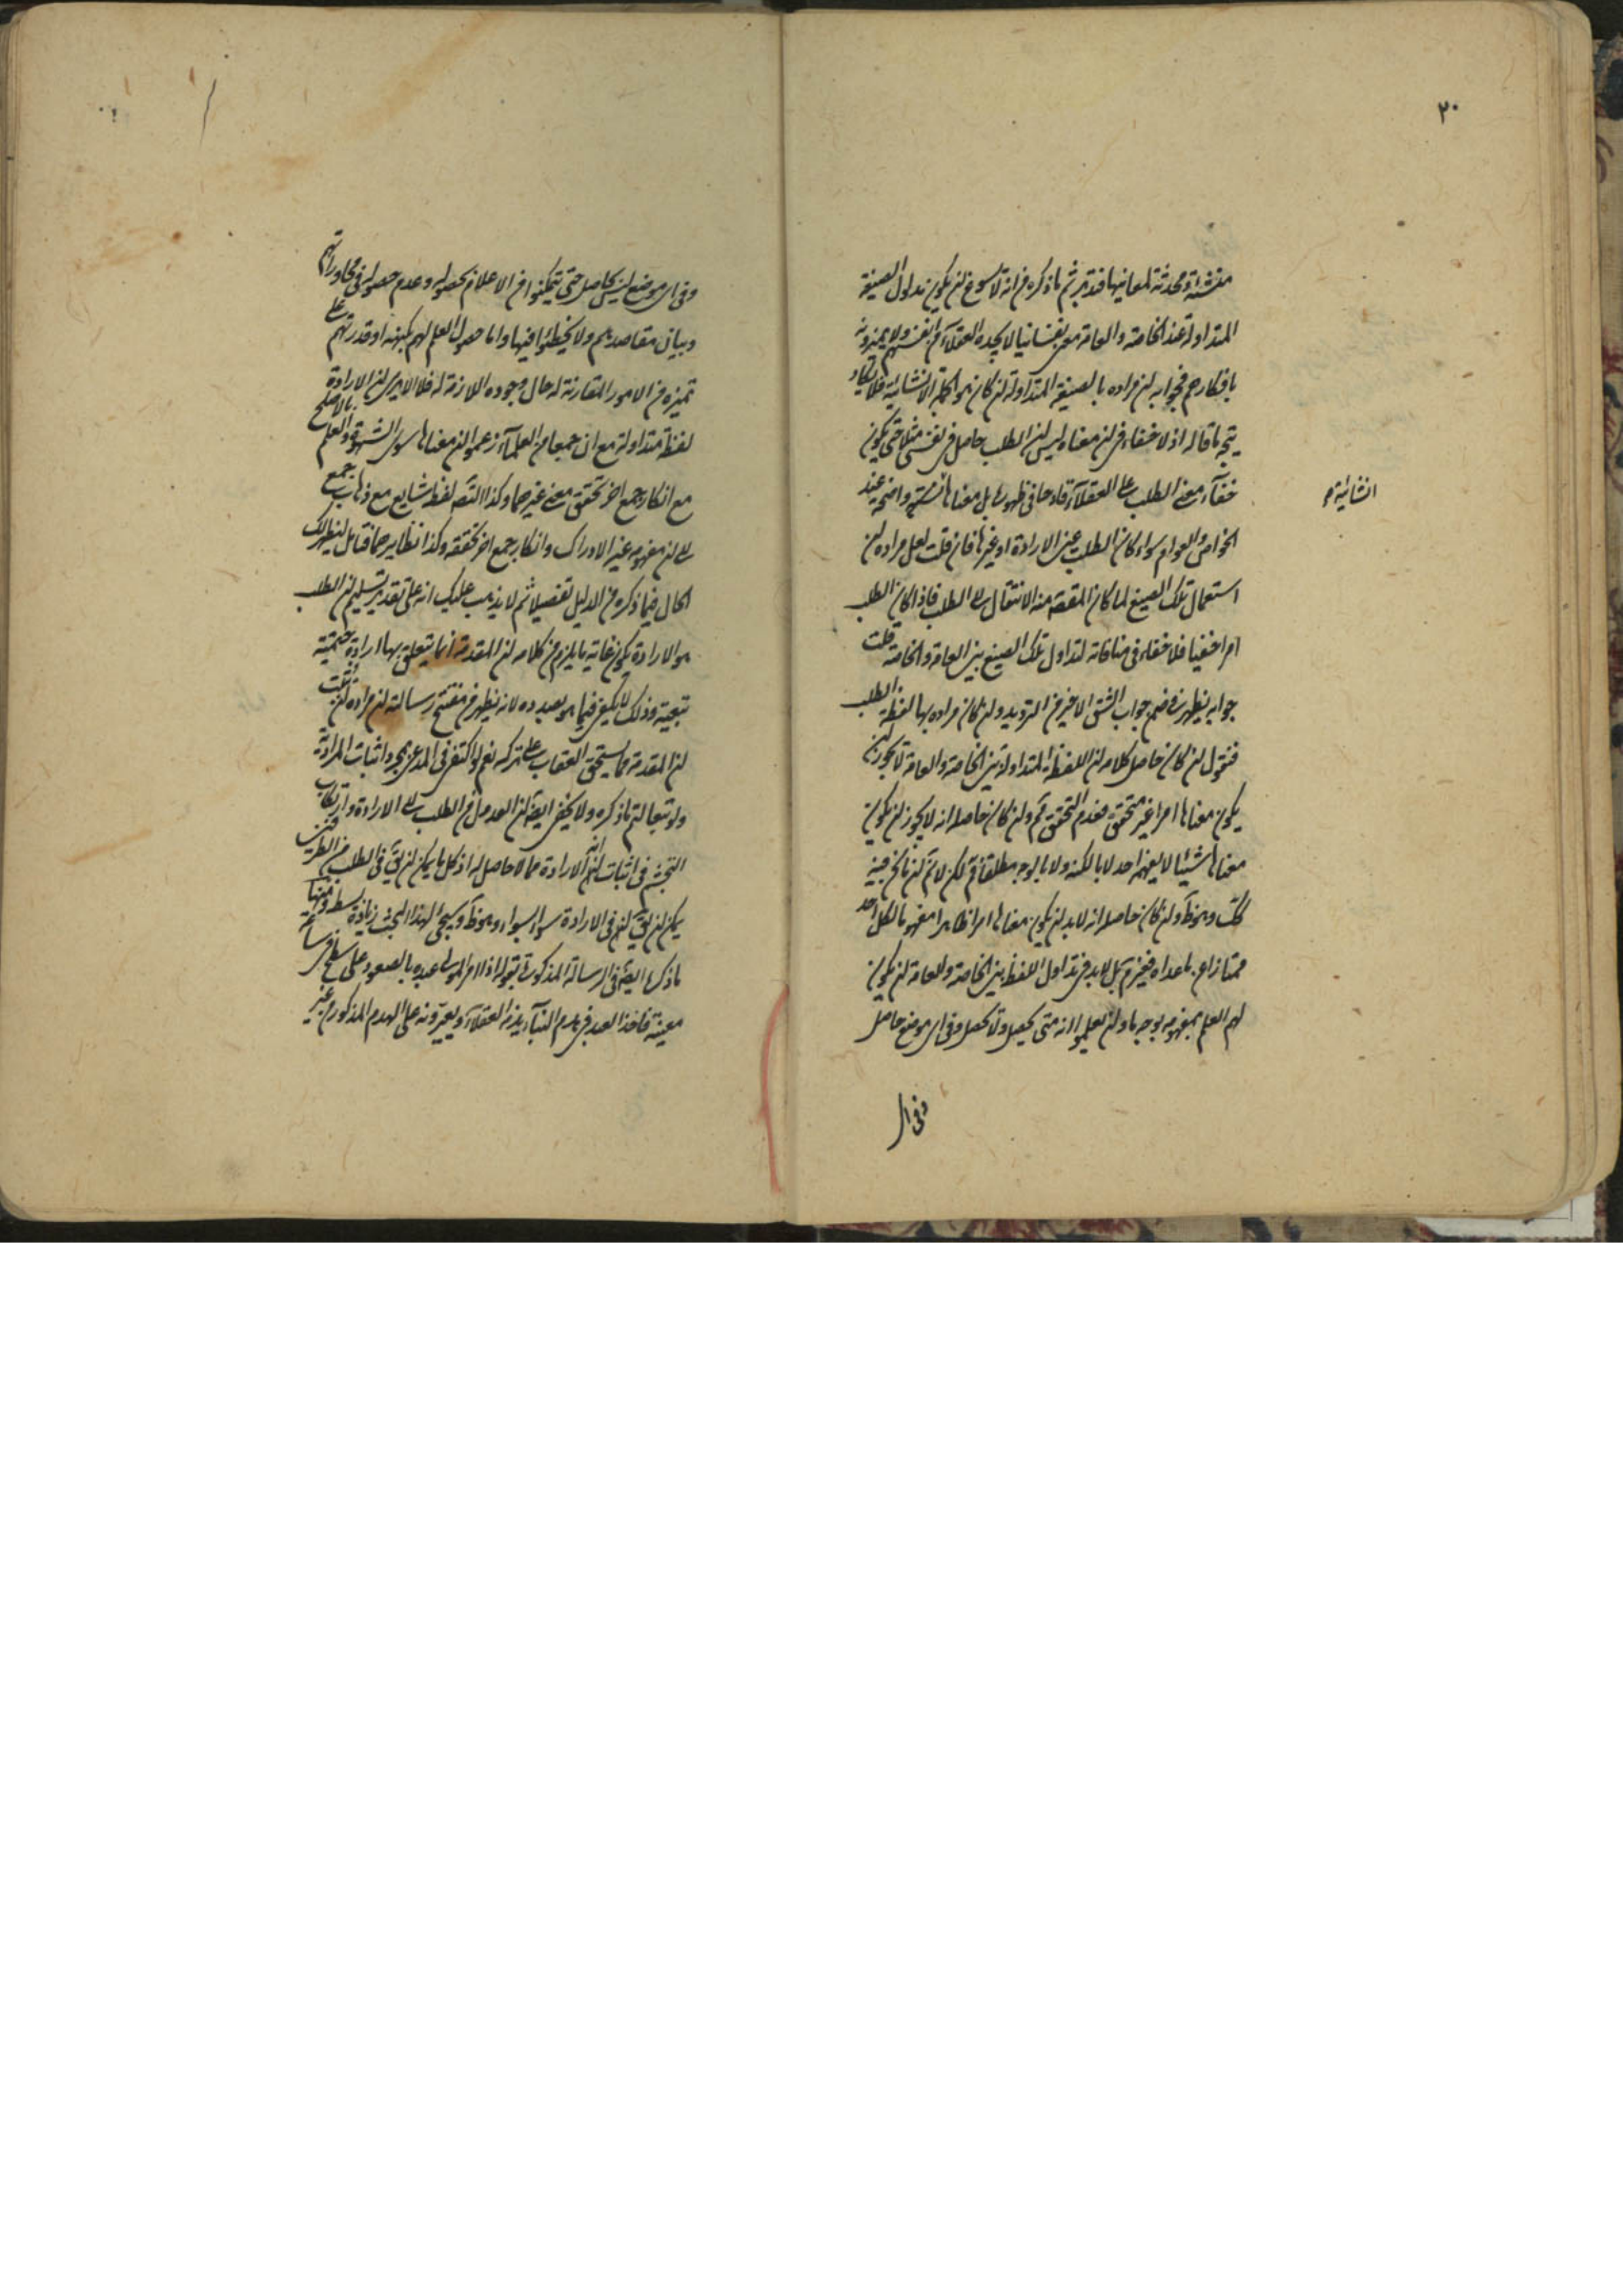 ٣٠
منشئة ومحدثة لمعانيها فتدبر ثم ما ذكره من انه لا يسوغ ان يكون مدلول الصيغة
المتداولة عند الخاصة والعامة معنى نفسانيا لا يجده العقلاء من انفسهم ولا يميزونه
بافكارهم فجوابه ان مراده بالصيغة المتداولة ان كان هو الجملة الانشائية فلا يكاد
يتجه ما قاله اذ لا خفاء فى ان معناه ليس ان الطلب حاصل فى نفسى مثلا حتى يكون
خفاء معنى الطلب على العقلاء قادحا فى ظهورها بل معناها انشائية واضحة عند
انشائية
الخواص والعوام سواء كان الطلب عين الارادة او غيرها فان قلت لعل مراده ان
استعمال تلك الصيغ لما كان المقصد منه الانتقال الى الطلب فاذا كان الطلب
امرا خفيا فلا خفاء فى منافاته لتداول تلك الصيغ بين العامة والخاصة قلت
جوابه يظهر فى ضمن جواب الشق الاخير من الترديد وان كان مراده بها لفظة الطلب
فنقول ان كان حاصل كلامه ان اللفظة المتداولة بين الخاصة والعامة لا يجوز ان
يكون معناها امرا غير متحقق فعدم التحقق ثم وان كان حاصله انه لا يجوز ان يكون
معناها شيئا لا يفهمه احد لا بالكنه ولا بالوجه مطلقا فثم لكن لا ثم ان ما نحن فيه
كك وهو ظ وان كان حاصله انه لا بد ان يكون معناها امرا ظاهرا مفهوما لكل احد
ممتازا عن ما عداه فغير ثم بل لا بد فى تداول اللفظ بين الخاصة والعامة ان يكون
لهم العلم بمفهومه بوجه ما وان يعلموا انه متى يحصل ولا يحصل وفى اى موضع حاصل
وفى اى
وفى اى موضع ليس بحاصل حتى يتمكنوا من الاعلام بحصوله وعدم حصوله فى محاوراتهم
وبيان مقاصدهم ولا يخطئوا فيها واما حصول العلم لهم بكنهه او قدرتهم على
تميزه من الامور المقارنة له حال وجوده اللازمة له فلا الا يرى ان الارادة
لفظة متداولة مع ان جمعا من العلماء زعموا ان معناها سوى الشهوة والعلم بالاصلح
مع انكار جمع اخر تحقق معنى غيرهما وكذا التصور لفظ شايع مع ذهاب جمع
الى ان مفهومه عين الادراك وانكار جمع اخر تحققه وكذا نظايرهما فتامل ليظهر لك
الحال فيما ذكره من الدليل تفصيلا ثم لا يذهب عليك انه على تقدير تسليم ان الطلب
هو الارادة يكون غاية ما يلزم من كلامه ان المقدمة انما يتعلق بها ارادة حتمية
تبعية وذلك لا يكفى فيما هو بصدده لانه يظهر من مفتتح رسالته ان مراده ان يثبت
ان المقدمة مما يستحق العقاب على تركه نعم لو اكتفى فى المدعى بمجرد اثبات المرادية
ولو تبعا لتم ما ذكره ولا يخفى ايضا ان العدول من الطلب الى الارادة وارتكاب
التجشم فى اثبات انه الارادة مما لا حاصل له اذ كل ما يمكن ان يق فى الطلب من الطرفين
يمكن ان يق فى الارادة سواء بسواء وهو ظ وسيجئ لهذا البحث زيادة بسط ومنها
ما ذكره ايضا فى الرسالة المذكورة بقوله اذا امر المولى عبده بالصعود على سطح فى ساعة
معينة فاخذ العبد فى هدم البناء يذمه العقلاء ويعيرونه على الهدم المذكور من غير